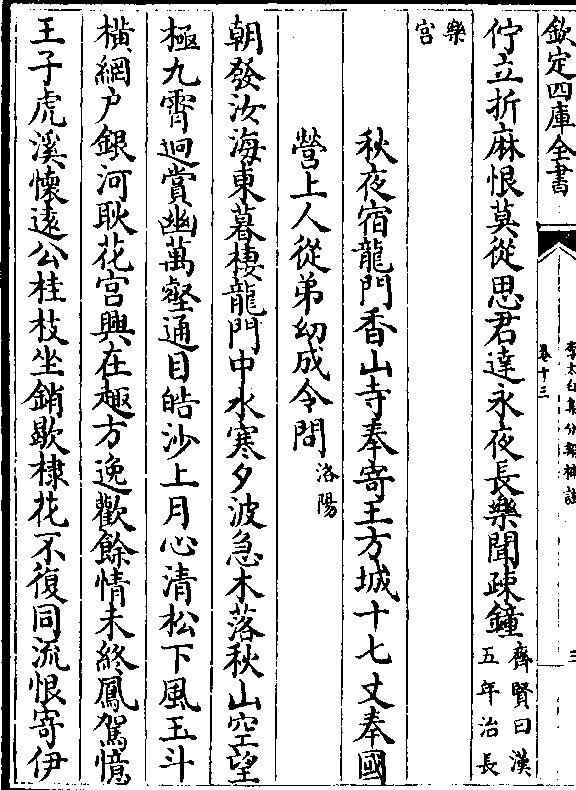 欽定四庫全書
李太白集分類補註
卷十三
三
佇立折麻恨莫從思君達永夜長樂聞疎鐘齊賢曰漢五年治長
樂宫
秋夜宿龍門香山寺奉寄王方城十七丈奉國
瑩上人從弟幼成令問洛陽
朝發汝海東暮棲龍門中水寒夕波急木落秋山空望
極九霄迥賞幽萬壑通目皓沙上月心清松下風玉斗
橫網户銀河耿花宫興在趣方逸歡餘情未終鳳駕憶
王子虎溪懷遠公桂枝坐銷歇棣花不復同流恨寄伊